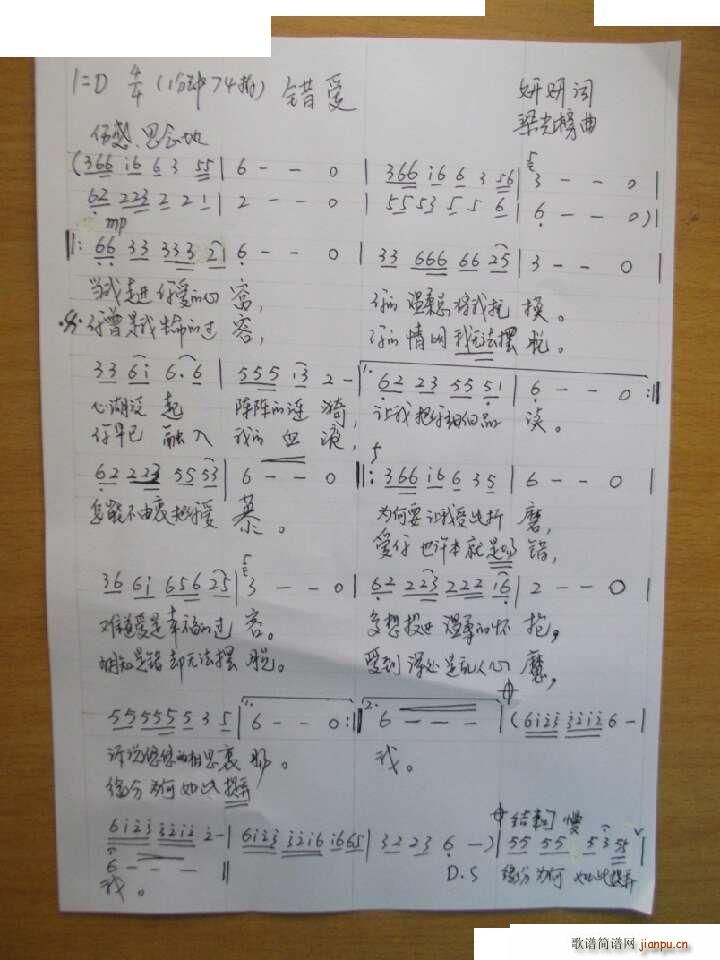 1=D 4/4 (1分钟74拍) 错爱 妍妍词
曲
伤感、思念地
(366 i6 6 3 55 | 6 - - 0 | 366 i6 6 3 56 | 3 - - 0 |
62 223 2 2 1 | 2 - - 0 | 55 53 5 5 6 | 6 - - 0) |
mp
||: 66 33 333 21 | 6 - - 0 | 33 666 66 25 | 3 - - 0 |
当我走进你爱的心窗, 你的温柔总将我
你曾是我生命的过客, 你的情网我无法摆脱。
33 6i 6·6 | 555 i3 2 - | 1. 62 23 55 51 | 6 - - 0 :||
心湖泛起 阵阵的涟漪, 让我把你细细品 读。
你早已 融入 我的血液,
62 223 55 53 | 6 - - 0 ||: 366 i6 6 35 | 6 - - 0 |
怎能不由衷把你爱慕。 为何要让我受此折磨,
爱你也许本就是 错,
36 6i 656 25 | 3 - - 0 | 62 223 222 i6 | 2 - - 0 |
难道爱是幸福的过客。 多想投进温柔的怀抱,
明知是错却无法摆脱。 爱到深处是乱人心魔,
55 555 5 3 5 | 1. 6 - - 0 :|| 2. 6 - - - | (6i23 32i2 6 - |
诉说 相思 我。
缘分为何如此捉弄
6i23 32i2 2 - | 6i23 32i6 i6 65 | 3 2 2 3 6 -) | 结束句 慢 55 55 53 55
6 - - - || D.S 缘分为何 如此捉弄
我。
歌谱简谱网
jianpu.cn